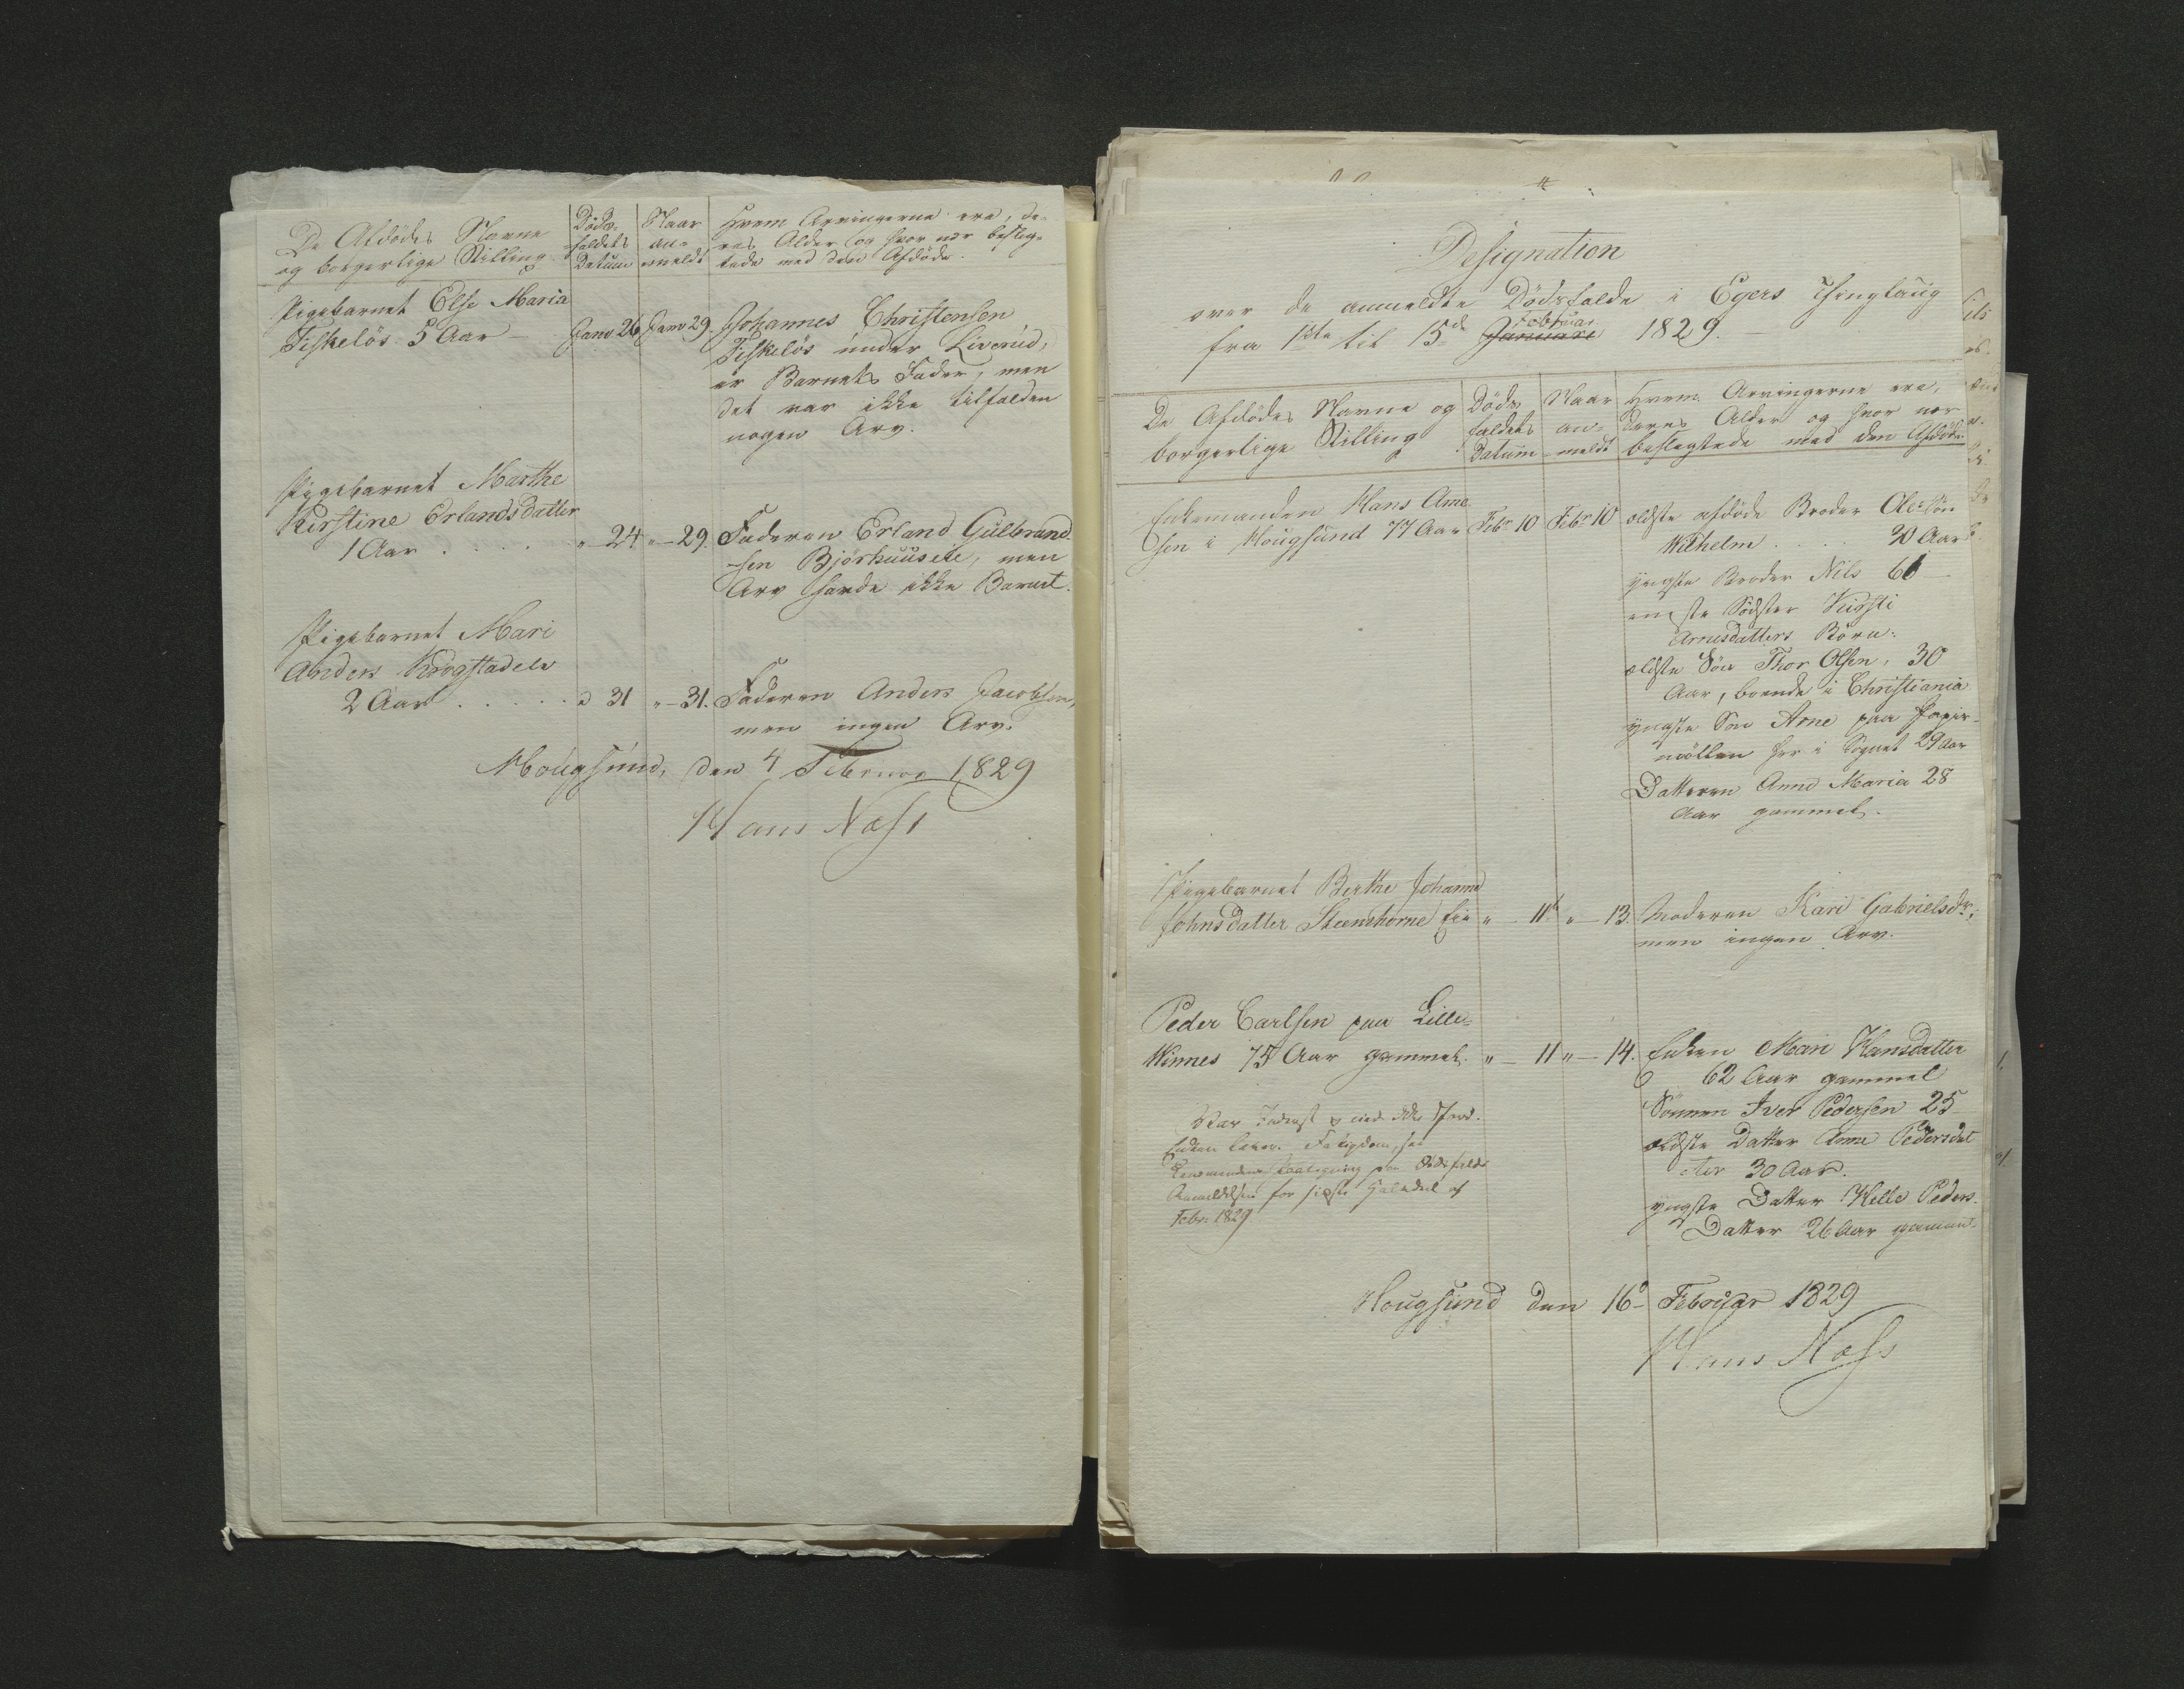 De Afdödes Navne
og borgerlige Stilling
Döds-
faldets
Datum
Naar
an-
meldt
Hvem Arvingerne ere, de-
res Alder og hvor nær beslæg-
tede med den Afdöde.
Pigebarnet Else Maria
Fiskelös 5 Aar –
Janv 26
Janv 29.
Johannes Christensen
Fiskelös under Liverud,
er Barnets Fader, men
det var ikke tilfalden
nogen Arv.
Pigebarnet Marthe
Kirstine Erlandsdatter
1 Aar . . . . .
" – 24
" – 29.
Faderen Erland Gulbrand-
sen Björhuuseie, men
Arv havde ikke Barnet.
Pigebarnet Mari
Anders Krogstadele
2 Aar . . . . .
" 31
" – 31.
Faderen Anders Jacobsen,
men ingen Arv.
Hougsund, den 4 Februar 1829
Hans Næss
Designation
over de anmeldte Dödsfalde i Egers Thinglaug
Februar
fra 1ste til 15de Januari 1829.
De Afdödes Navne og
borgerlige Stilling
Döds
faldets
Datum
Naar
an-
meldt
Hvem Arvingerne ere,
deres Alder og hvor nær
beslegtede med den Afdöde
Enkemanden Hans Arne
sen i Hougsund 77 Aar
Febr 10
Febr 10
ældste afdöde Broder Ole Sön
Wilhelm . . . . 30 Aar
yngste Broder Nils 61 –
eneste Södster Kirsti
Arnesdatters Börn:
ældste Sön Thor Olsen, 30
Aar, boende i Christiania
yngste Sön Arne paa Papir-
möllen her i Sognet 29 Aar
Datteren Anne Maria 28
Aar gammel.
Pigebarnet Berthe Johanne
Johnsdatter Steenshorne Eie
" – 11
" – 13.
Moderen Kari Gabrielsdr,
men ingen Arv.
Peder Carlsen paa Lille-
Winnes 75 Aar gammel.
" – 11
" – 14.
Enken Mari Hansdatter
62 Aar gammel
Sönnen Iver Pedersen 25
ældste Datter Anne Pedersdat
-ter 30 Aar.
yngste Datter Kelle Peders-
Datter 26 Aar gammel
Var Inderst
Enken lever. Fattigdom, see
Lensmandens Paategning paa Dödsfalds
Anmeldelsen for sidste Halvdel af
Febr. 1829
Hougsund den 16de Februar 1829
Hans Næss